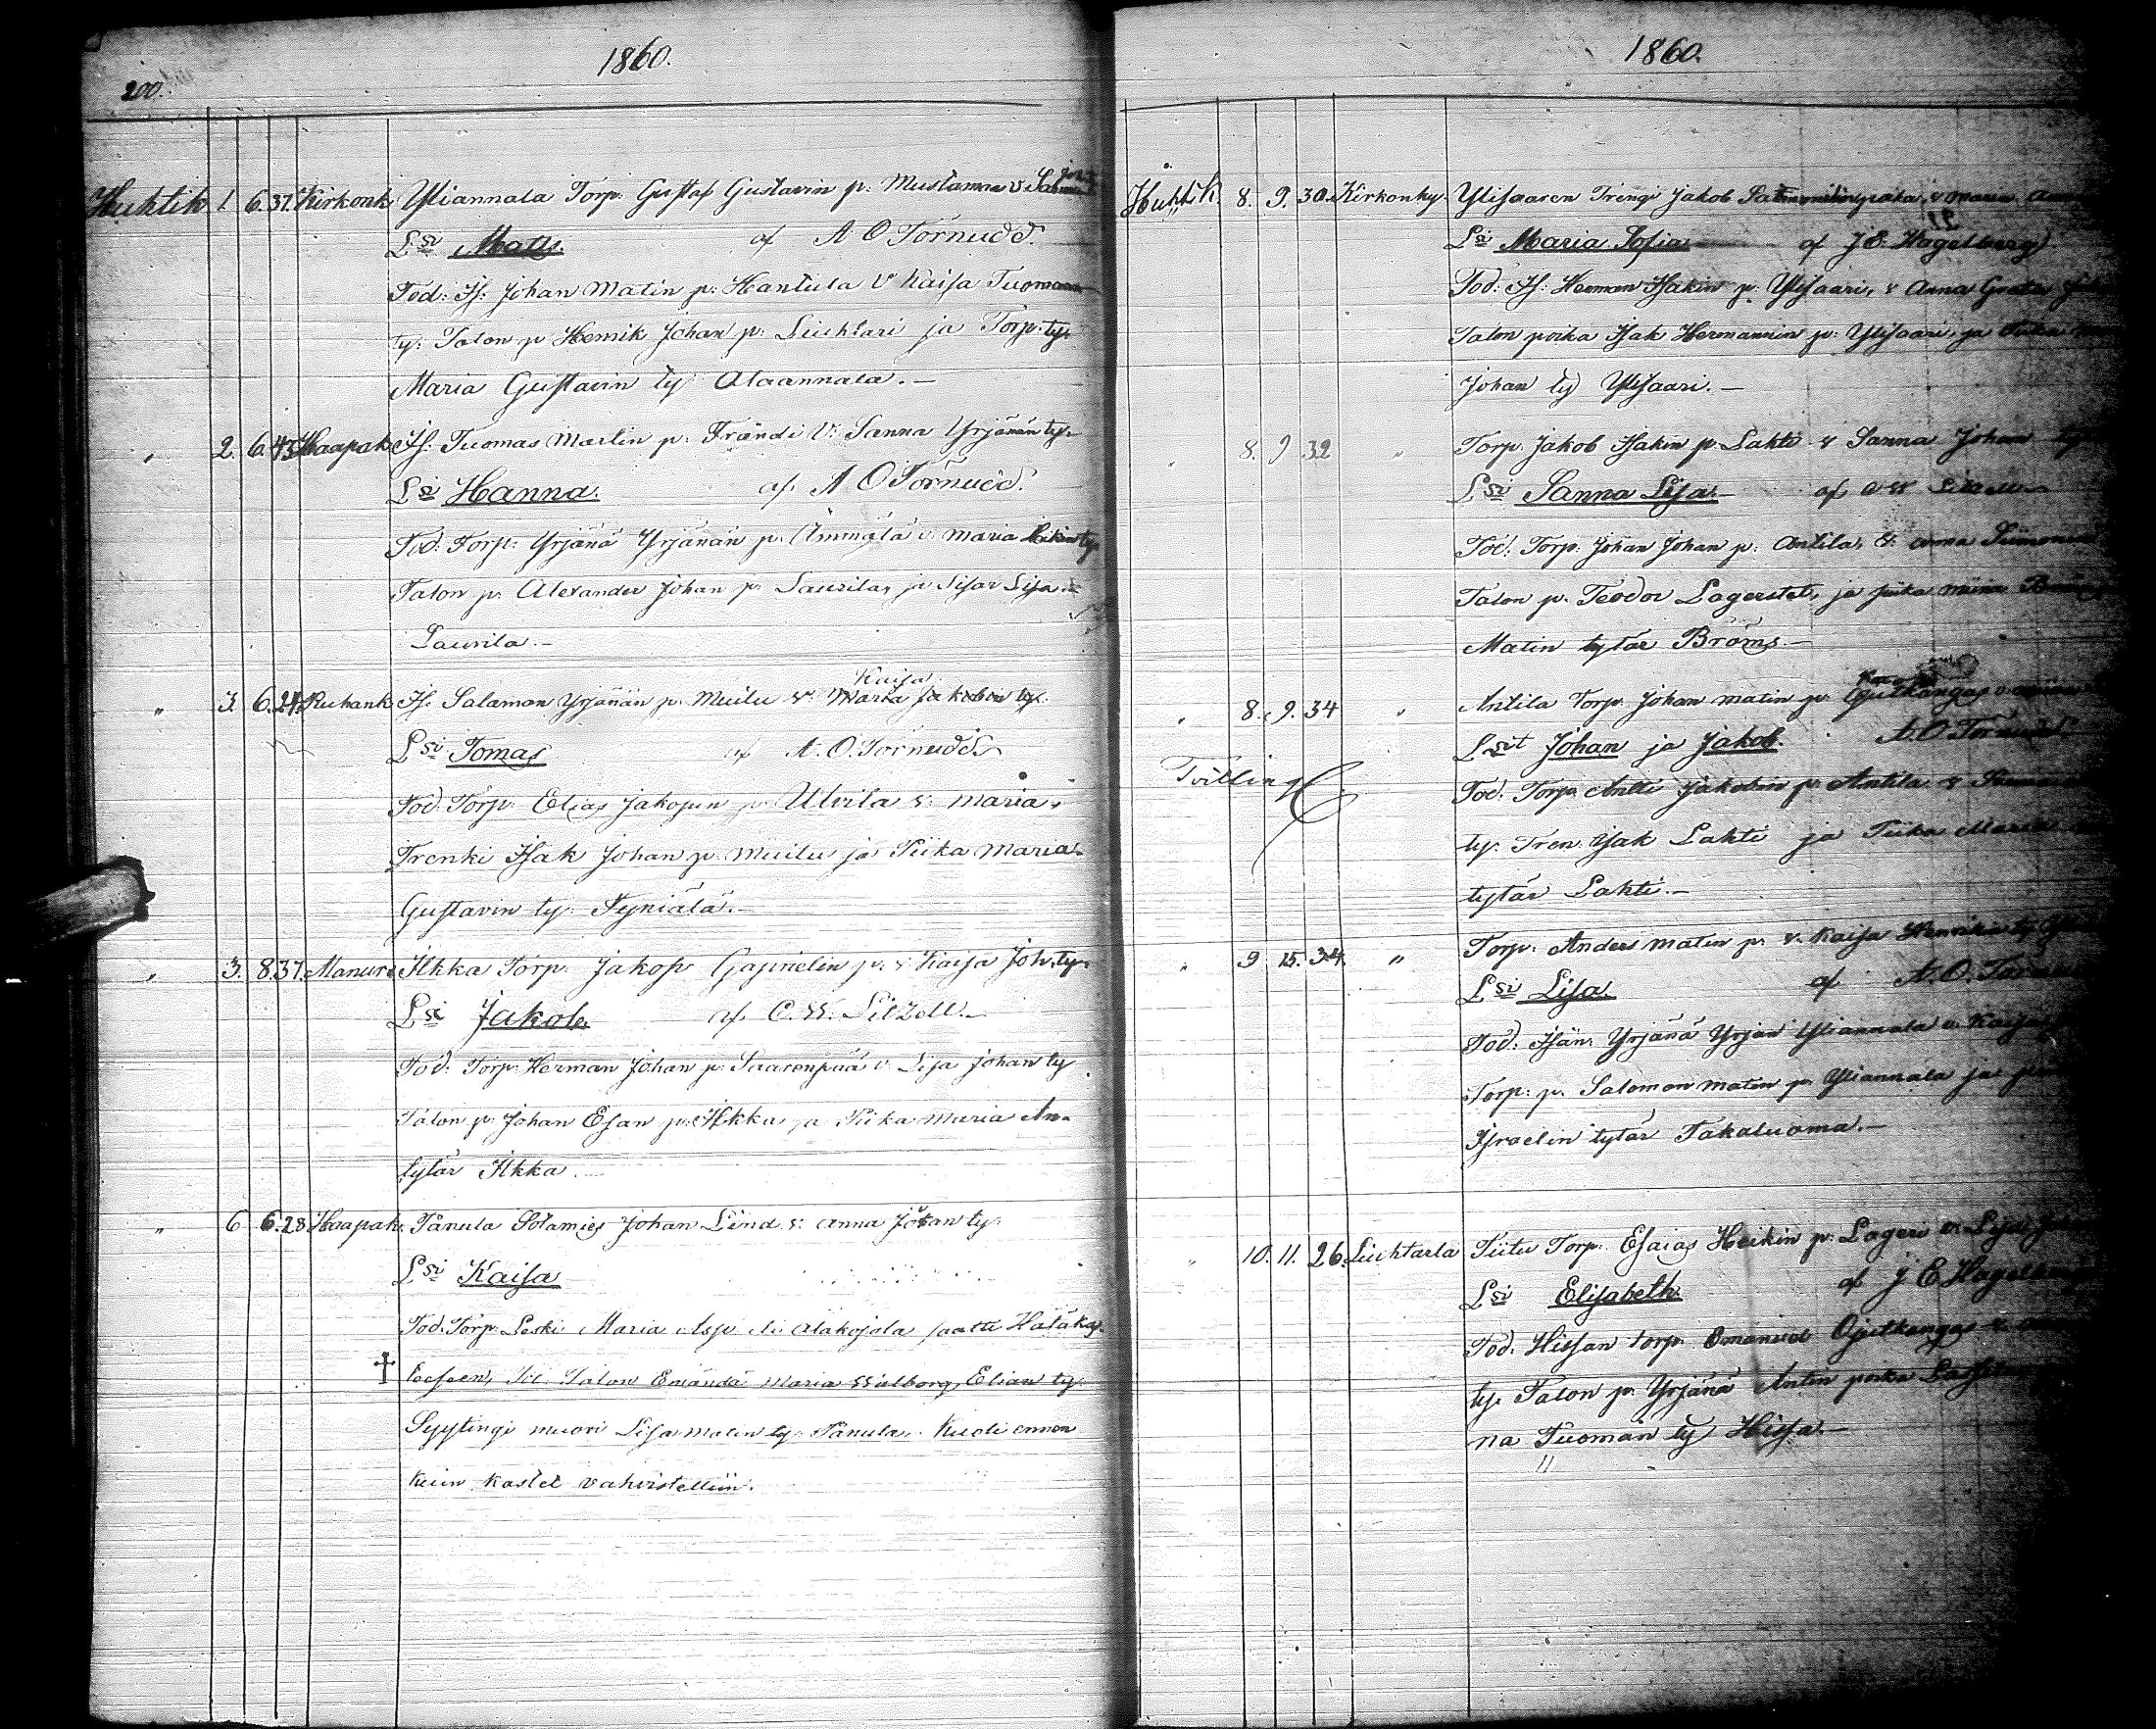 200.
1860.
Huhtik 1. 6. 37. Kirkonk. Yliannala Torp. Gustaf Gustavin p: Mustamaa v.
Lsi Mats. af A O Törnudd.
Tod: Is: Johan Matin p: Hantula V Kaisa Tuomaan
ty. Talon p Henrik Johan p: Liuhtari ja Torp. ty.
Maria Gustavin ty Alaannala.-
" 2. 6. 43. Haapak. Is. Tuomas Martin p: Frändi V: Sanna Yrjänän ty.
Lsi Hanna. af. A O Törnudd.
Tod. Torp: Yrjänä Yrjänän p: Ämmälä v. Maria ty
Talon p: Alexander Johan p: Laurila, ja Sisar Lisa
Laurila.-
Kaisa
" 3. 6. 24. Ruhank Is. Salamon Yrjänän p: Muilu v. Maria Jakobin ty.
Lsi Tomas af A. O. Törnudd.
Tod. Torp. Elias Jakopin p. Ulvila v: Maria,
Trenki Isak Johan p: Muilu ja Piika Maria
Gustavin ty: Tyniälä.-
" 3. 8. 37. Ilkka Torp. Jakop Gaprielin p: v Kaisa Joh. ty.
Lsi Jakob. af C. W. Litzell.-
Tod: Torp. Herman Johan p: Saarenpää v. Lisa Johan ty
Talon p: Johan Esan p: Ilkka, ja Piika Maria An-
tytär Ilkka.
" 6 6. 28 Haapak. Pänula Sotamies Johan Lind v: Anna Johan ty.
Lsi Kaisa
Tod. Torp. Leski Maria Alakojola saatti Hätäkas-
† teeseen, Talon Emändä Maria Walborg Elian ty.
Syytingi muori Lisa Matin ty: Pänula. Kuoli ennen
kuin kastet vahvistettiin.
1860.
Huhtik. 8. 9. 30. Kirkonky. Ylisaaren Trengi Jakob v Maria
Lsi Maria Sofia af J E. Hagelberg
Tod: Is: Herman Isakin p: Ylisaari, v Anna Greta
Talon poika Isak Hermannin p: Ylisaari, ja Piika
Johan ty Ylisaari.-
" 8. 9 32 " Torp. Jakob Isakin p. Lahti v Sanna Johan ty
Lsi Sanna Lisa.- af C W Litzell
Tod. Torp. Johan Johan p: Antila, v. Anna
Talon p. Teodor Lagerstet, ja piika Miina
Matin tytär Bröms.-
" 8. 9. 34 " Antila Torp. Johan Matin p: Ojutkangas v.
Lsit Johan ja Jakob. A. O. Törnudd
Tvilling
Tod. Torp. Antti Jakobin p: Antila v
ty. Tren. Isak Lahti ja Piika Maria
tytär Lahti.-
" 9 15. 34. " Torp: Anders Matin p: v. Kaisa Henrikin ty
Lsi Lisa. af A. O. Törnudd
Tod: Isän: Yrjänä Yrjän Yliannala v. Kaisa
Torp: p. Salomon Matin p. Yliannala ja
Israelin tytär Takaluoma.-
" 10. 11. 26. Liuhtarla Piitu Torp. Esaias Heikin p: Lageri v. Lisa
Lsi Elisabeth. af J E Hagelberg
Tod. Hissan torp. Emanuel Ojutkangas v.
ty. Talon p: Yrjänä Antin poika
na Tuoman ty Hissa.-